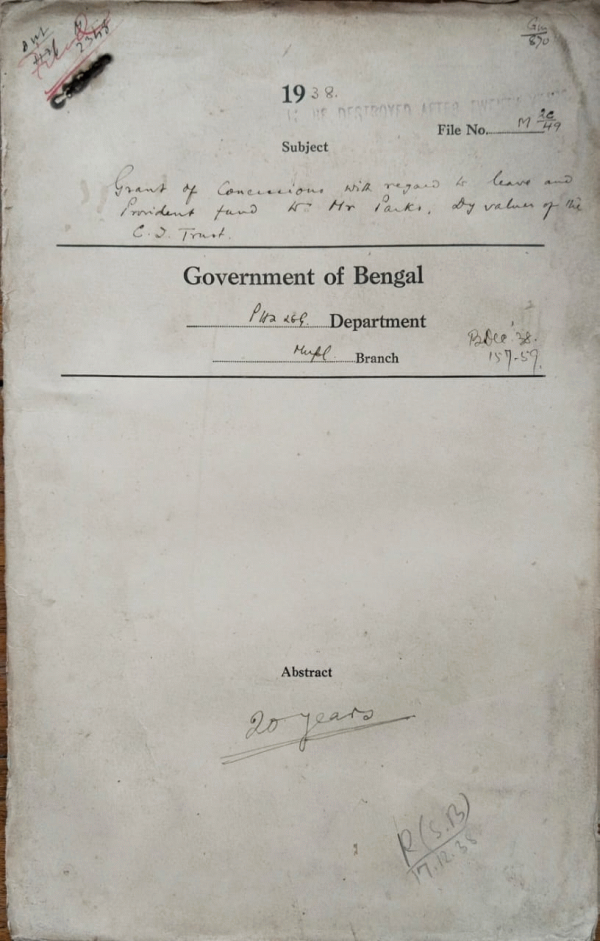 1938.
TO BE DESTROYED AFTER TWENTY
File No. M 2C/49
Subject
Grant of Concessions with regard to leave and
Provident fund to Mr Parks, Dy valuer of the
C. I. Trust.
Government of Bengal
Department
Branch
B Dec '38.
157-59.
Abstract
20 years
R (S.B)
17.12.38